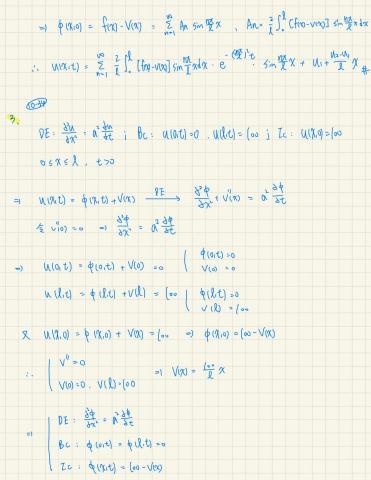 ⇒ φ(x,0) = f(x)-V(x) = Σ_{n=1}^{∞} An sin nπ/l x , An = 2/l ∫_0^l [f(x)-v(x)] sin nπ/l x dx
∴ u(x,t) = Σ_{n=1}^{∞} 2/l ∫_0^l [f(x)-v(x)] sin nπ/l x dx · e^{-(nπ/l)^2 t} · sin nπ/l x + u₁ + (u₂-u₁)/l x #
3.
DE: ∂²u/∂x² = a² ∂u/∂t ; BC: u(0,t)=0 , u(l,t)=100 ; IC: u(x,0)=100
0≤x≤l , t>0
⇒ u(x,t) = φ(x,t) + V(x) —DE→ ∂²φ/∂x² + V''(x) = a² ∂φ/∂t
令 V''(x) = 0 ⇒ ∂²φ/∂x² = a² ∂φ/∂t
⇒ u(0,t) = φ(0,t) + V(0) = 0 | φ(0,t)=0
V(0) = 0
u(l,t) = φ(l,t) + V(l) = 100 | φ(l,t)=0
V(l) = 100
又 u(x,0) = φ(x,0) + V(x) = 100 ⇒ φ(x,0) = 100 - V(x)
∴ | V''=0
V(0)=0 , V(l)=100 ⇒ V(x) = 100/l x
⇒ | DE : ∂²φ/∂x² = a² ∂φ/∂t
BC : φ(0,t) = φ(l,t) = 0
IC : φ(x,t) = 100 - V(x)